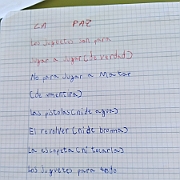 LA PAZ
Los juguetes son para
jugar a jugar (de verdad)
No para jugar a Matar
(de mentira)
Las pistolas (ni de agua)
El revolver (ni de broma)
La escopeta (ni tocarla)
Los juguetes para todo